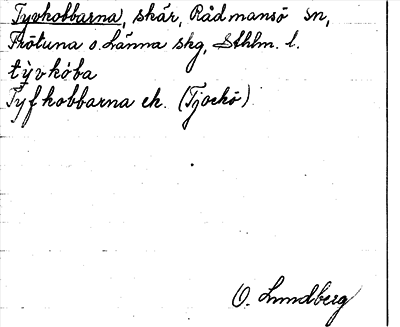 Tyvkobbarna, skär, Rådmansö sn,
Frötuna o. Länna skg, Sthlm. l.
tỳvkòba
Tyfkobbarna ek. (Tjockö)
O. Lundberg